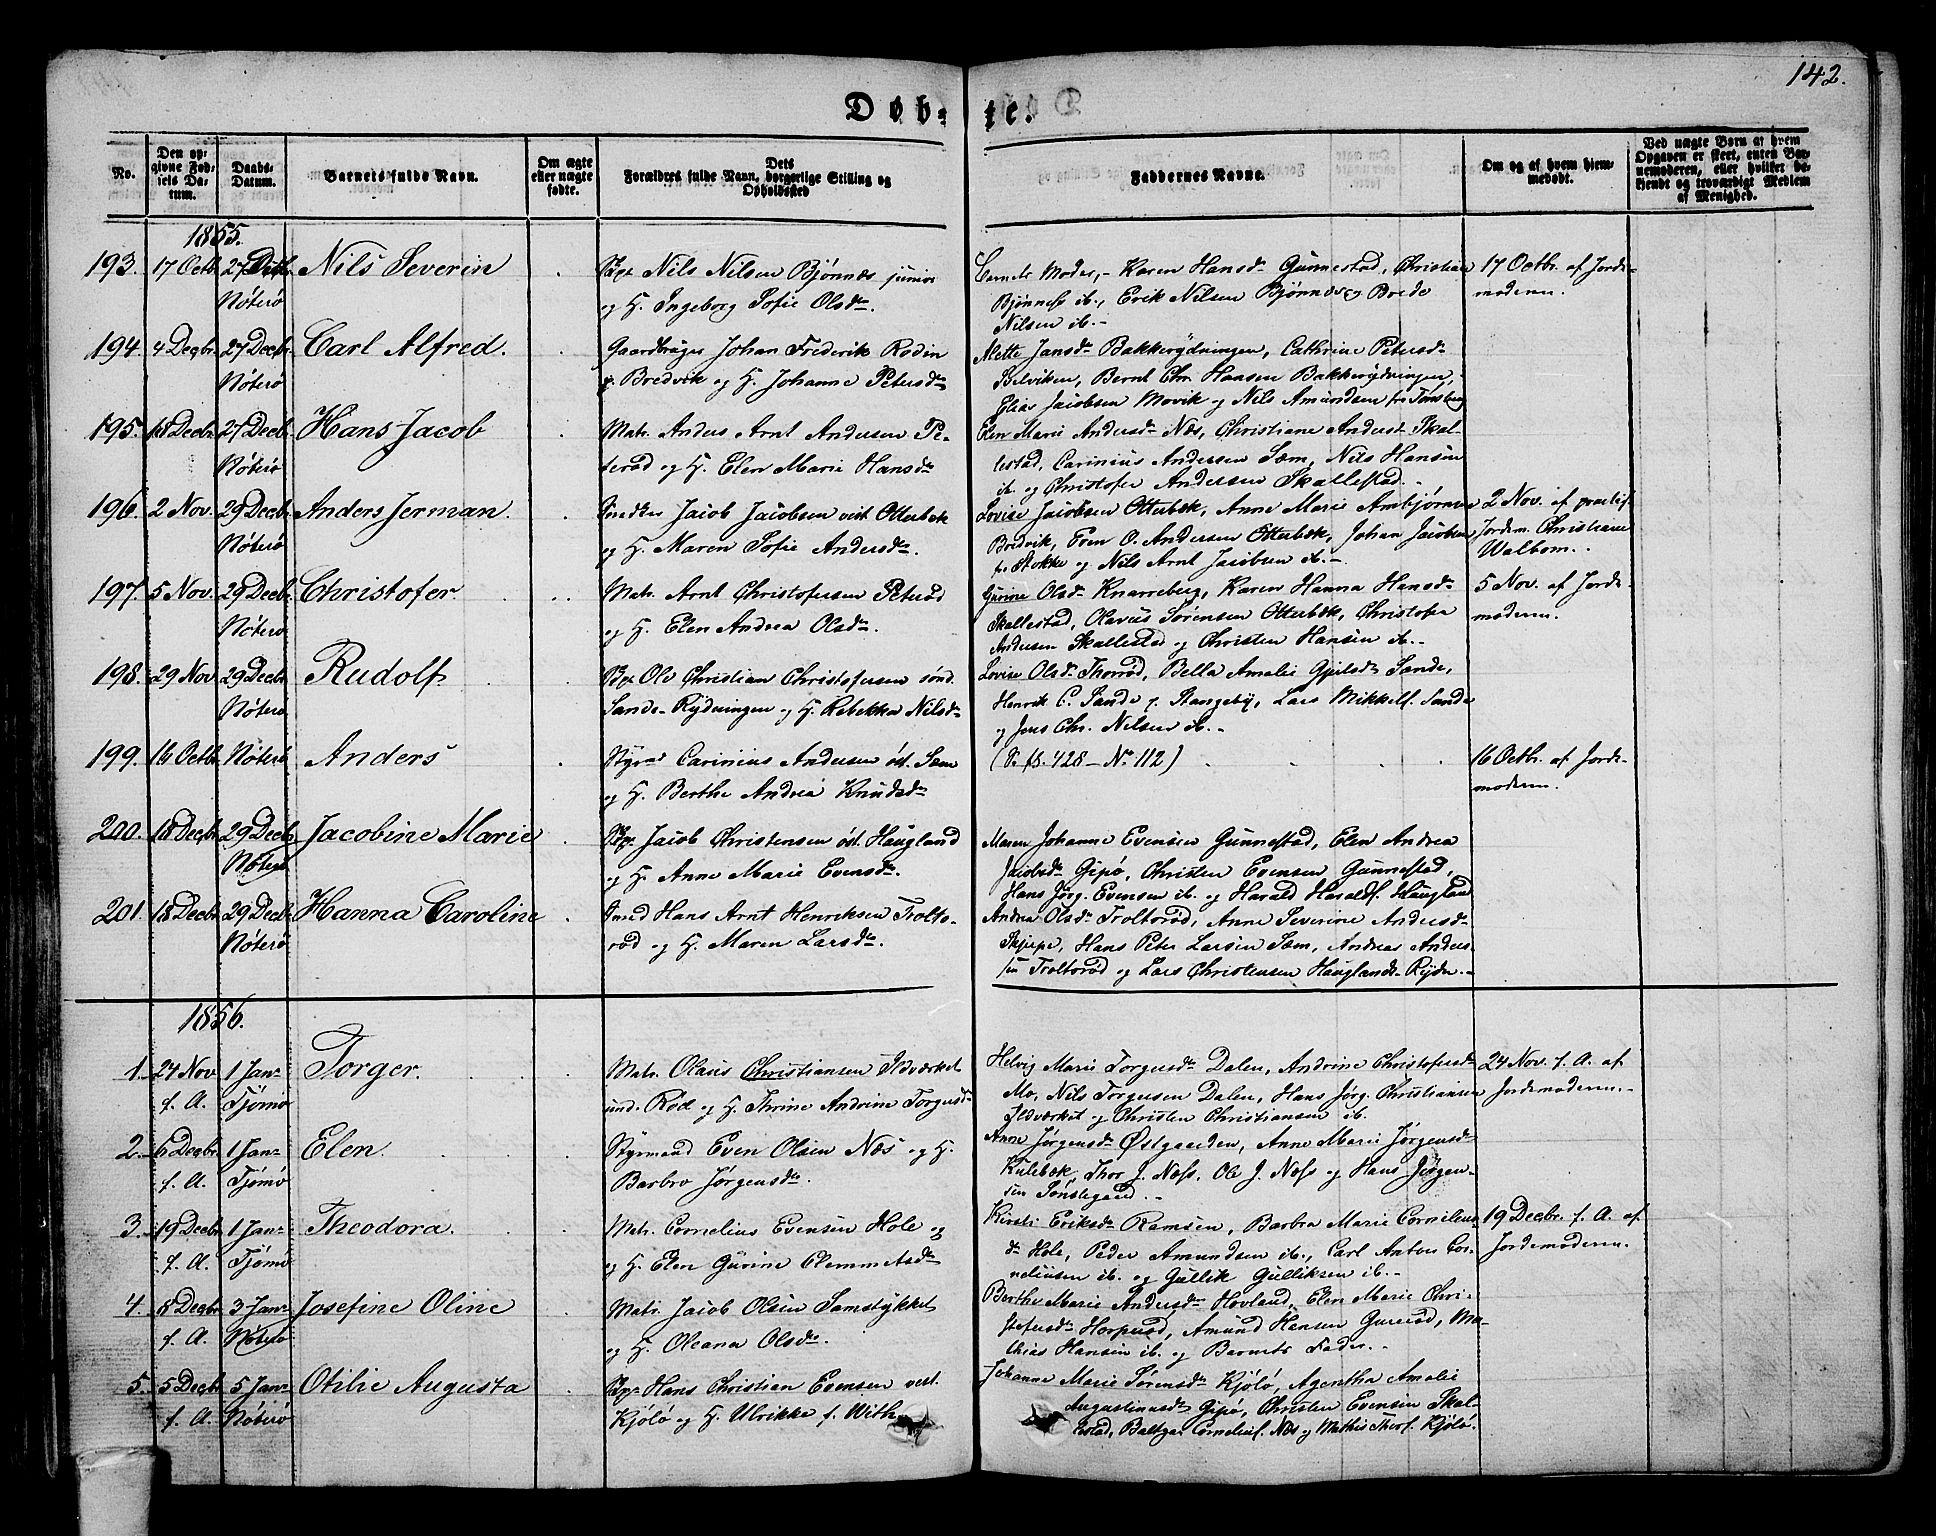 142.
Døbte.
No.
Den opgivne Fødsels Datum.
Daabs-Datum.
Barnets fulde Navn.
Om ægte eller uægte fødte.
Dets Forældres fulde Navn, borgerlige Stilling og Opholdssted
Faddernes Navne.
Om og af hvem hjemmedøbt.
Ved uægte Børn af hvem Opgaven er skeet, enten Barnemoderen, eller hvilket bekjendt og troværdigt Medlem af Menighed.
1855.
193. 17 Octb. 27 Decb. Nøterø
Nils Severin
Nils Nilsen Bjønnæs junior
og H. Ingeborg Sofie Olsdr.
Barnets Moder, - Karen Hansdr Gunnestad, Christian
Bjønnes ib., Erik Nilsen Bjønnes og Brede
Nilsen ib. -
17 Octbr. af Jorde-
moderen.
194. 4 Decbr. 27 Decb. Nøterø
Carl Alfred.
Gaardbruger Johan Frederik Rodin
p. Bredvik og H. Johanne Petersdr
Mette Jansdr Bakkerydningen, Cathrine Petersdr
Belviken, Bernt Chr. Hansen Bakkerydningen,
Elias Jacobsen Movik og Nils Amundsen fra Tønsberg
195. 18 Decbr. 27 Decb. Nøterø
Hans Jacob
Matr. Anders Arnt Andersen Pe-
terød og H. Elen Marie Hansdr
Elen Marie Andersdr Næs, Christiane Andersdr Skal-
lestad, Carinius Andersen Sæm, Nils Hansen
ib. og Christofer Andersen Skallestad. -
196. 2 Nov. 29 Decb. Nøterø
Anders Jerman.
Jacob Jacobsen vest. Otterbæk
og H. Maren Sofie Andersdr.
Lovise Jacobsen Otterbæk, Anne Marie Ambjørnsen
Bredvik, Even O. Andersen Otterbæk, Johan Jacobsen
fr. Stokke og Nils Arnt Jacobsen ib. -
2 Nov. af practis.
Jordem. Christiane
Walbom.
197. 5 Nov. 29 Decb. Nøterø
Christofer.
Matr. Arnt Christofersen Peterød
og H. Elen Andrea Olsdr.
Gurine Olsdr Knarreberg, Karen Hanna Hansdr
Skallestad, Olavus Sørensen Otterbæk, Christofer
Andersen Skallestad og Christen Hansen ib. -
5 Nov. af Jorde-
moderen.
198. 29 Nov 29 Decbr. Nøterø
Rudolf
Ole Christian Christofersen sønd.
Sande-Rydningen og H. Rebekka Nilsdr
Lovise Olsdr Thorrød, Bella Amalie Gjelsdr Sande,
Henrik C. Sande p. Stangeby, Lars Mikkels. Sande
og Jens Chr. Nilsen ib. -
199. 16 Octb. Nøterø
Anders
Styrm. Carinius Andersen øst. Sæm
og H. Berthe Andrea Knudsdr
(S. fs. 428 - No 112)
16 Octbr. af Jorde-
moderen.
200. 18 Decbr. 29 Decb. Nøterø
Jacobine Marie
Jacob Christensen øst. Haugland
og H. Anne Marie Evensdr.
Maren Johanne Evensen Gunnestad, Elen Andrea
Jacobsdr Gipø, Christen Evensen Gunnestad,
Hans Jørg. Evensen ib. og Harald Haralds. Haugland
201. 18 Decbr. 29 Decb. Nøterø
Hanna Caroline
Smed Hans Arnt Henriksen Trolto-
rød og H. Maren Larsdr.
Andrea Olsdr Troltorød, Anne Severine Andersdr
Skjerpe, Hans Peter Larsen Sæm, Andreas Anders-
sen Troltorød og Lars Christensen Hauglands-Rydn. -
1856.
1. 24 Nov f. A. 1 Janr Tjømø
Torger.
Matr. Olaus Christiansen Ildværket
und. Rød og H. Thrine Andrine Torgersdr
Helvig Marie Torgersdr Dalen, Andrine Christofersdr
Mo, Nils Torgersen Dalen, Hans Jørg. Christiansen
Ildværket og Christen Christiansen ib.
24 Nov. f. A. af
Jordemoderen. -
2. 6 Decbr. f. A. 1 Janr Tjømø
Elen.
Styrmand Even Olsen Næs og H.
Barbro Jørgensdr.
Anne Jørgensdr Østgaarden, Anne Marie Jørgensdr
Kulebæk, Thor J. Næss, Ole J. Næss og Hans Jørgen-
sen Sønstegaard. -
3. 19 Decbr f. A. 1 Janr Tjømø
Theodora.
Matr. Cornelius Evensen Hole og
og H. Elen Gurine Clemmetsdr
Kirsti Eriksdr Ramsen, Barbra Marie Cornelius-
dr Hole, Peder Amundsen ib., Carl Anton Cor-
neliusen ib. og Gullik Gulliksen ib. -
19 Decbr. f. A. af
Jordemoderen.
4. 8 Decbr. f. A. 3 Janr Nøterø
Josefine Oline
Matr. Jacob Olsen Samstykket
og H. Oleana Olsdr.
Berthe Marie Andersdr Hovland, Elen Marie Chri-
stofersdr Hørperød, Amund Hansen Gurerød, Ma-
thias Hansen ib. og Barnets Fader. -
5. 5 Decbr f. A. 5 Janr Nøterø
Otilie Augusta
Hans Christian Evensen vest.
Kjølø og H. Ulrikke f. With.
Johanne Marie Sørensdr Kjølø, Agentha Amalie
Augustinusdr Gipø, Christen Evensen Skal-
lestad, Baltzar Cornelius. Næs og Mathis Thors. Kjølø.